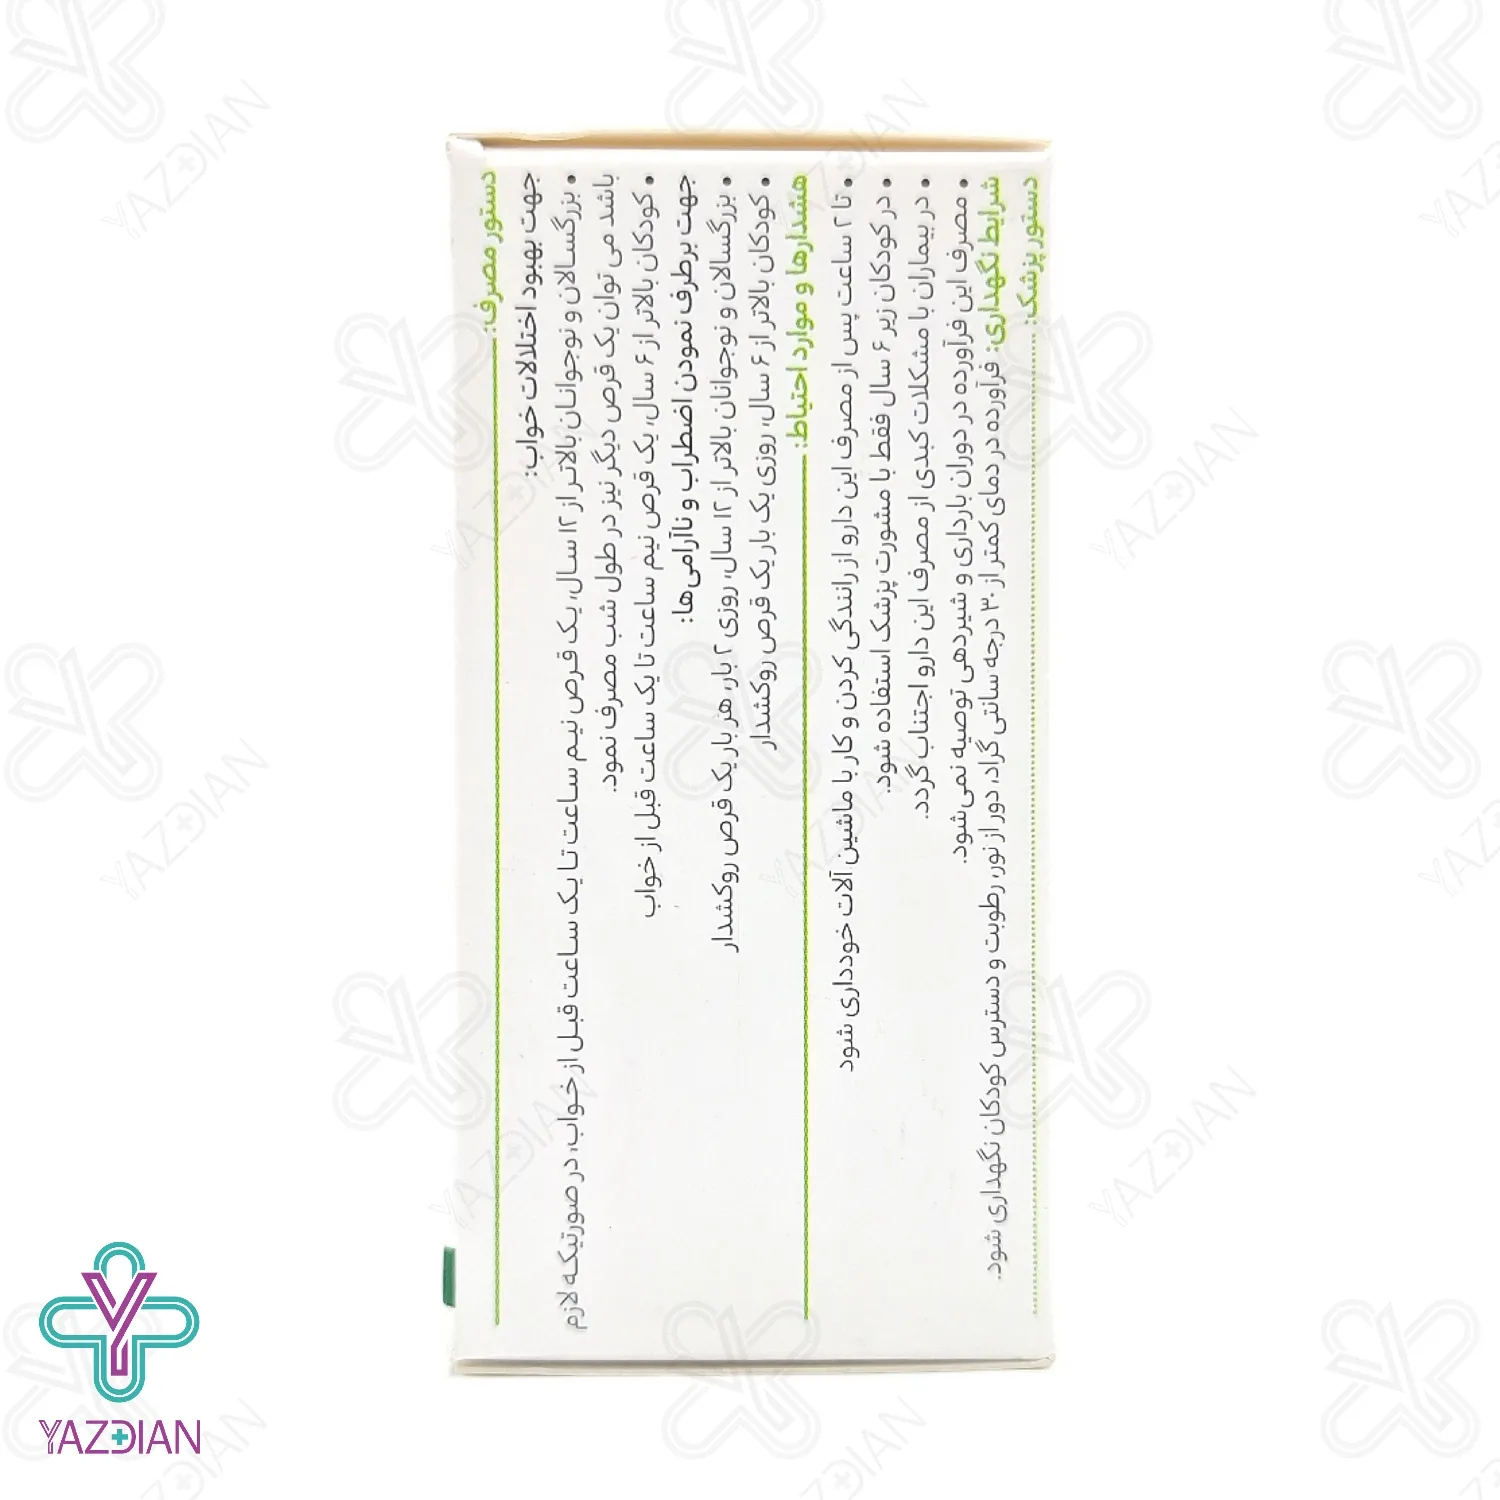 دستور مصرف:
جهت بهبود اختلالات خواب:
• بزرگسالان و نوجوانان بالاتر از ۱۲ سال، یک قرص نیم ساعت تا یک ساعت قبل از خواب، در صورتیکه لازم
باشد می توان یک قرص دیگر نیز در طول شب مصرف نمود.
• کودکان بالاتر از ۶ سال، یک قرص نیم ساعت تا یک ساعت قبل از خواب
جهت برطرف نمودن اضطراب و ناآرامی‌ها:
• بزرگسالان و نوجوانان بالاتر از ۱۲ سال، روزی ۲ بار، هر بار یک قرص روکشدار
• کودکان بالاتر از ۶ سال، روزی یک بار یک قرص روکشدار
هشدارها و موارد احتیاط:
• تا ۲ ساعت پس از مصرف این دارو از رانندگی کردن و کار با ماشین آلات خودداری شود
• در کودکان زیر ۶ سال فقط با مشورت پزشک استفاده شود.
• در بیماران با مشکلات کبدی از مصرف این دارو اجتناب گردد.
• مصرف این فرآورده در دوران بارداری و شیردهی توصیه نمی‌شود.
شرایط نگهداری: فرآورده در دمای کمتر از ۳۰ درجه سانتی گراد، دور از نور، رطوبت و دسترس کودکان نگهداری شود.
دستور پزشک:
YAZDIAN